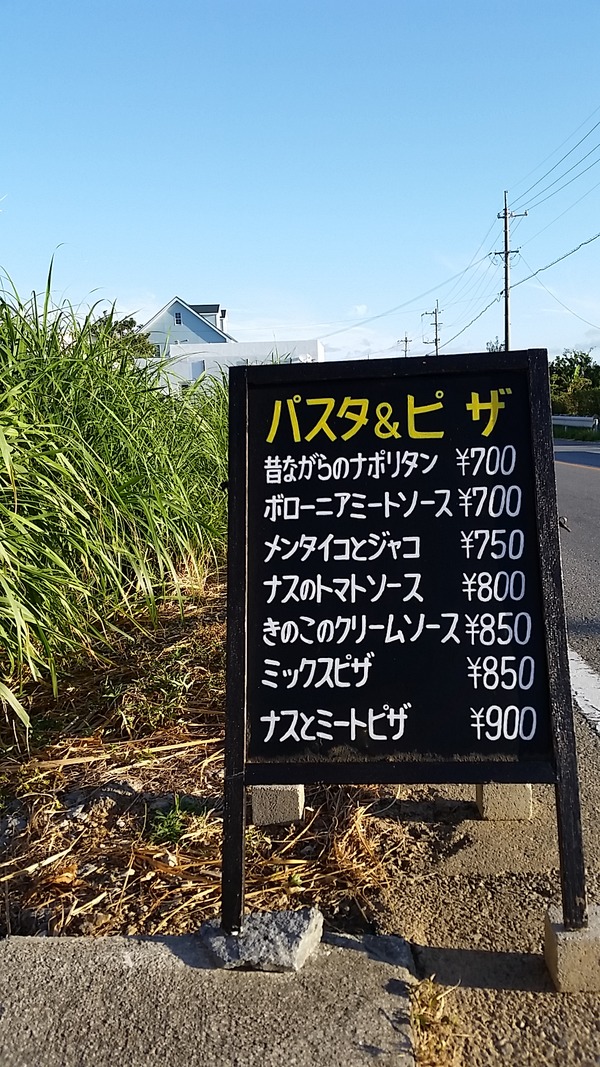 パスタ&ピザ
昔ながらのナポリタン ¥700
ボローニアミートソース ¥700
メンタイコとジャコ ¥750
ナスのトマトソース ¥800
きのこのクリームソース ¥850
ミックスピザ ¥850
ナスとミートピザ ¥900